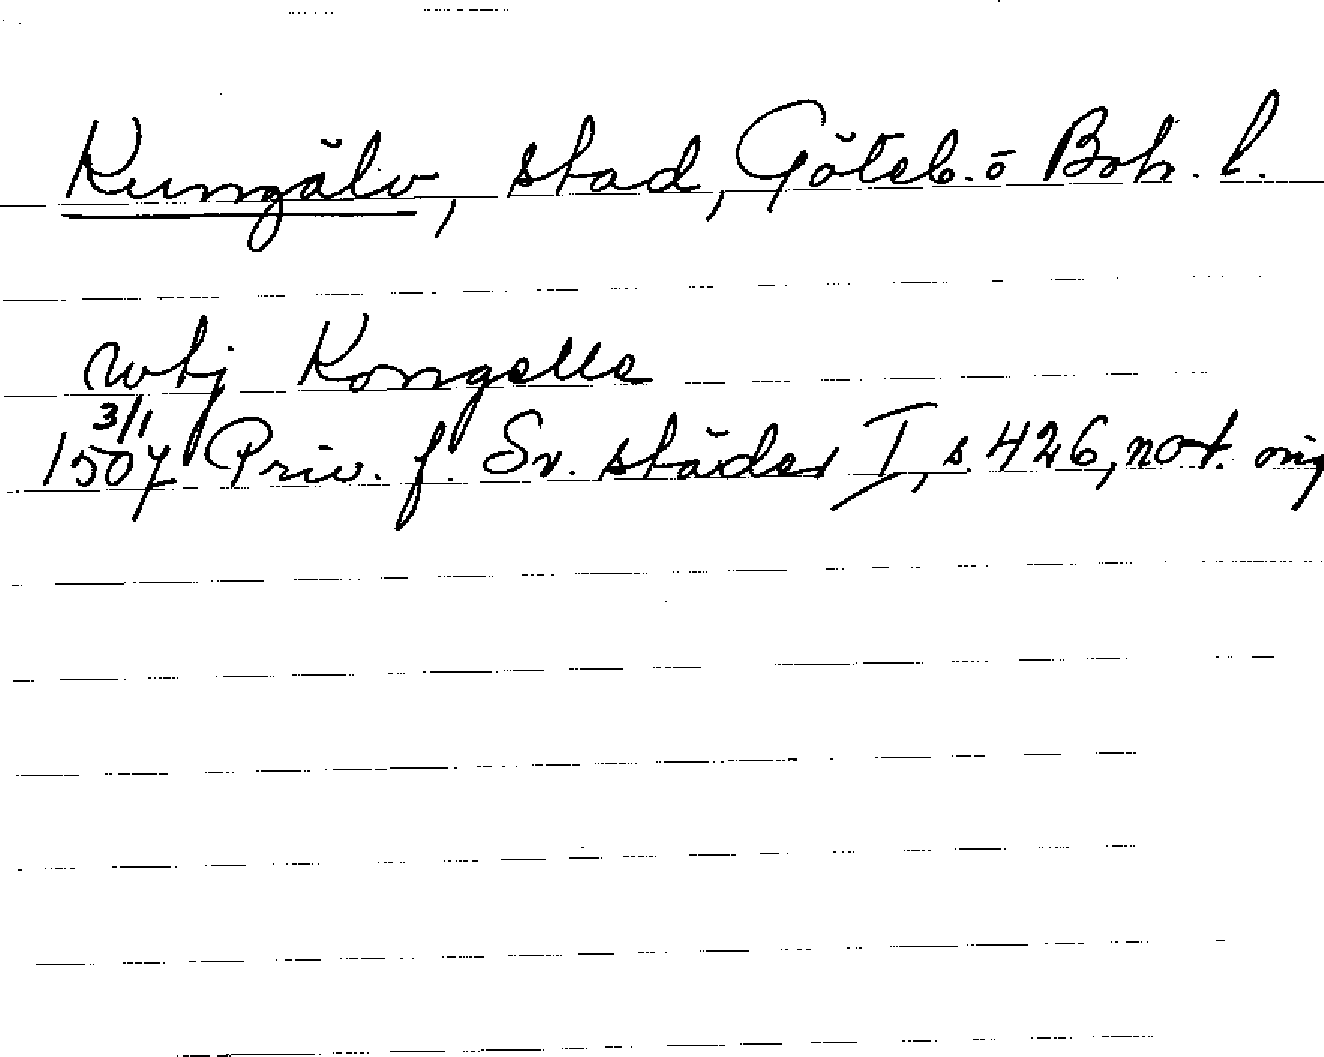 Kungälv, stad, Göteb. o Boh. l.
wtj Kongelle
3/1
1507 Priv. f. Sv. städer I, s 426, not. orig